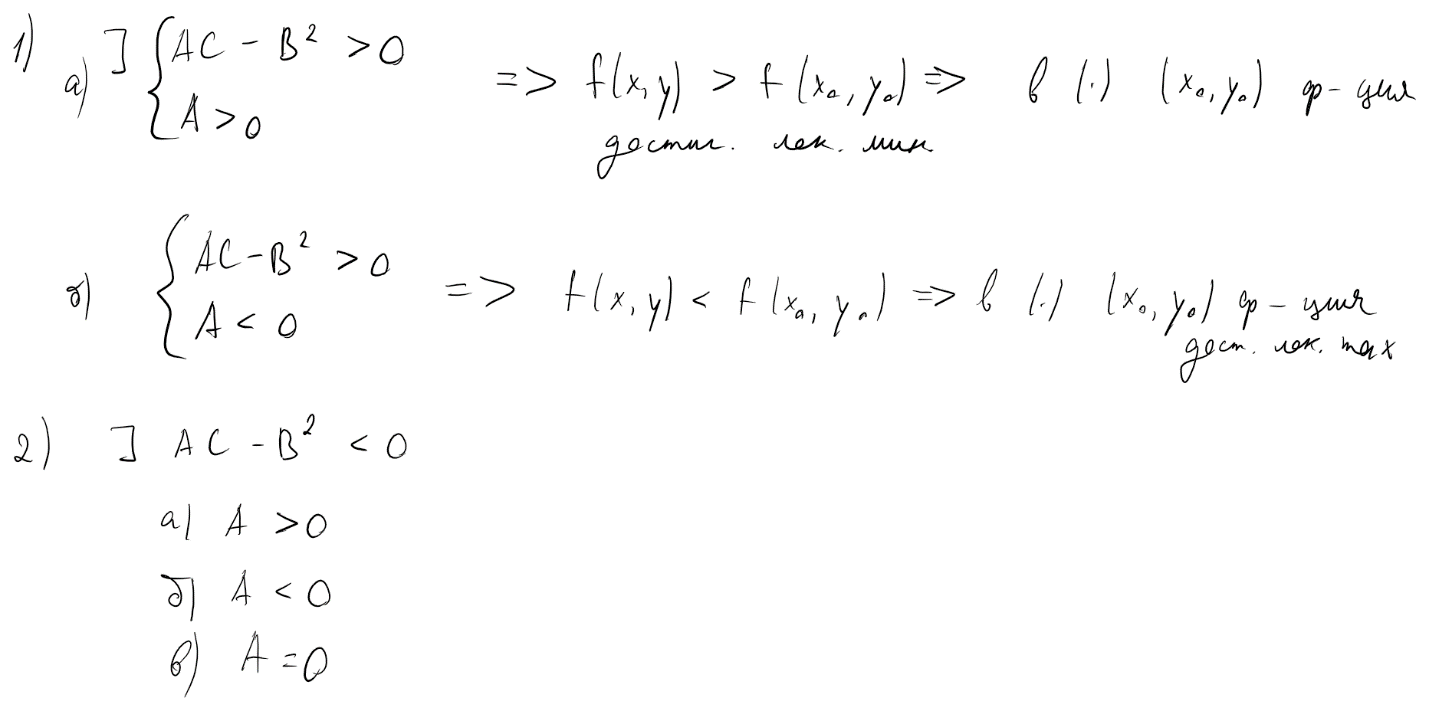 1) а) ] { AC - B² > 0
A > 0
=> f(x, y) > f(x₀, y₀) => в (·) (x₀, y₀) ф-ция
достиг. лок. мин.
б) { AC - B² > 0
A < 0
=> f(x, y) < f(x₀, y₀) => в (·) (x₀, y₀) ф-ция
дост. лок. max
2) ] AC - B² < 0
а) A > 0
б) A < 0
в) A = 0